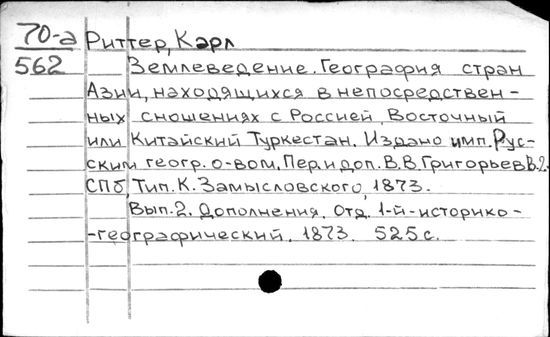 70-а Риттер, Карл
562 Землеведение. География стран
Азии, находящихся в непосредствен-
ных сношениях с Россией, Восточный
или Китайский Туркестан. Издано имп. Рус-
ским геогр. о-вом. Пер. и доп. В.В. Григорьев В.2.
СПб, Тип. К. Замысловского, 1873.
Вып. 2. Дополнения. Отд. 1-й-историко-
-географический. 1873. 525 с.